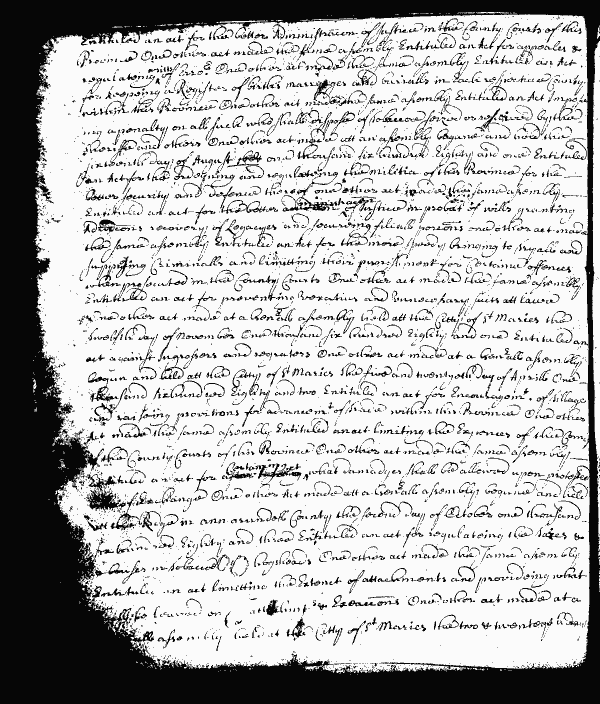 Entituled an act for the better Administracon of Justice in the County Courts of this
Province One other act made the same assembly Entituled an Act for appeales &
regulateing writts of Erro. One other act made the same assembly Entituled an Act
for keepeing a Register of births marriages and burialls in Each respective County
within this Province One other act made the same assembly Entituled an Act Impose
ing a penalty on all such who shall dispose of tobaccoe seized or received by the
Sheriffe and others One other act made att an assembly begunn and the
sixteenth day of August one thousand six hundred Eighty and one Entituled
An Act for the Ordering and regulateing the Militia of this Province for the
better security and defence thereof one other act made this same assembly
Entituled an act for the better administracon of Justice in probat of wills granting
Admcons recovery of Legacyes and secureing filiall porcons one other act made
the same assembly Entituled an Act for the more speedy bringing to tryalls and
Criminalls and limitting their punishment for Certaine offences
when prosecuted in the County Courts One other act made the same assembly
Entituled an act for preventing vexatious and unnecessary suits att Lawe
One other act made at a Genrall assembly held att the Citty of St Maries the
twelfth day of November One thousand six hundred Eighty and one Entituled an
act against Ingrosers and regrators One other act made at a Genrall assembly
begun and held att the Citty of St Maries the five and twentyeth day of Aprill One
thousand six hundred Eighty and two Entituled an act for Encouragemt. of tillage
and raiseing provitions for advancemt of trade within this Province One other
Act made the same assembly Entituled an act limiting the Expences of the
of the County Courts of this Province One other act made the same assembly
Entituled an act for Certainty what damadges shall be allowed upon protested
of Exchange One other Act made att a Genrall assembly begune and held
att the Ridge in ann arundell County the second day of October one thousand
six hundred Eighty and three Entituled an act for regulateing the &
in tobacco hogsheads One other act made the same assembly
Entituled an act limitting the Extent of attachments and provideing what
shall be leavied on att & Execucons One other act made at a
assembly held at the Citty of St Maries the two & twenteth